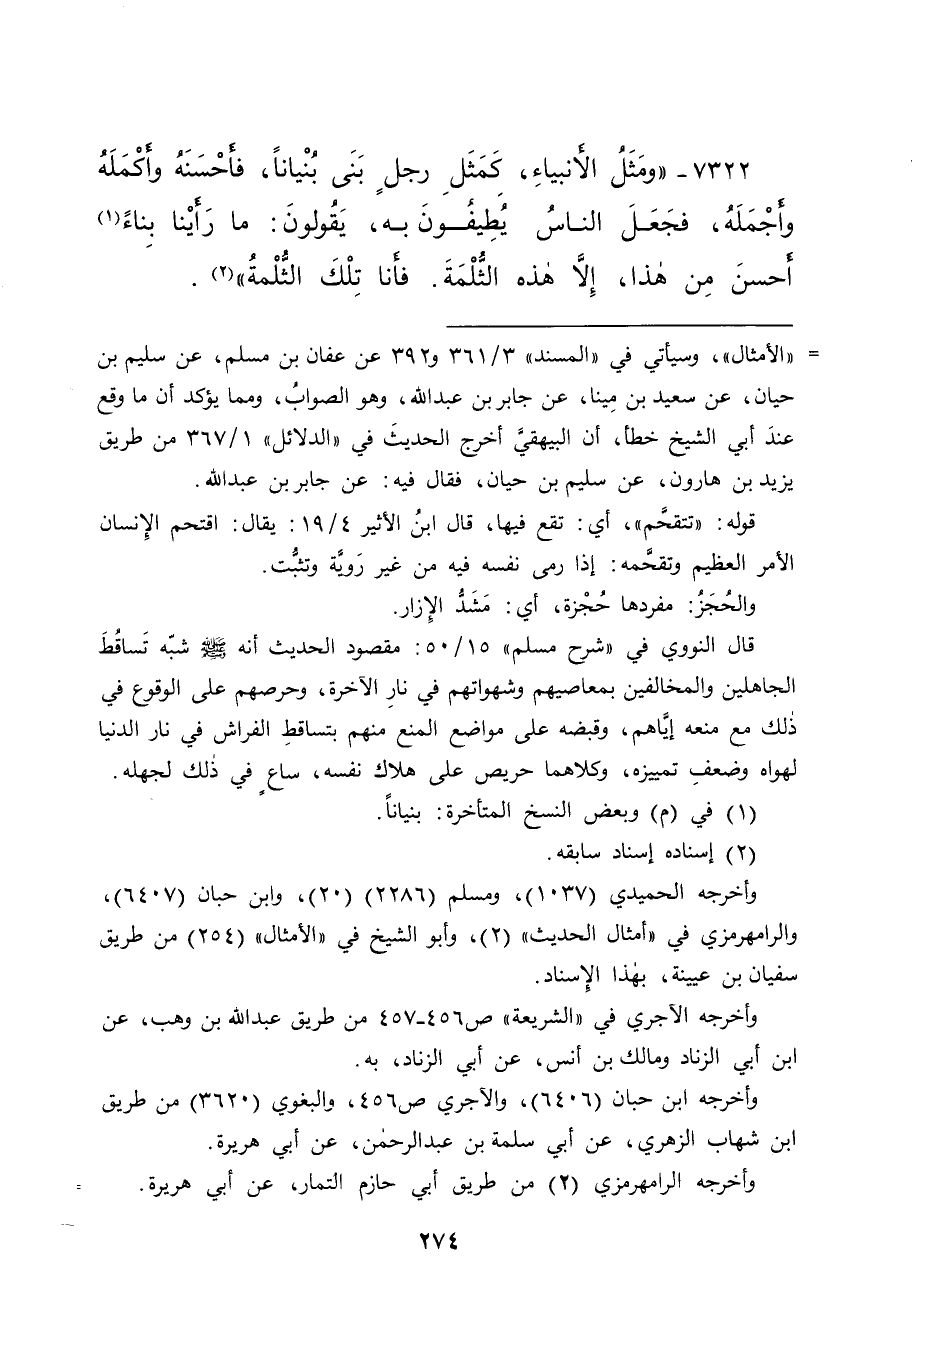 ٧٣٢٢ - «ومَثَلُ الأَنبياءِ، كَمَثَلِ رجلٍ بَنَى بُنْياناً، فأَحْسَنَهُ وأَكْمَلَهُ
وأَجْمَلَهُ، فجَعَلَ الناسُ يُطِيفُونَ به، يَقُولونَ: ما رَأَيْنا بِناءً(١)
أَحسنَ مِن هٰذا، إِلَّا هٰذه الثُّلْمَةَ. فأَنا تِلْكَ الثُّلْمةُ»(٢).
= «الأمثال»، وسيأتي في «المسند» ٣٦١/٣ و٣٩٢ عن عفان بن مسلم، عن سليم بن
حيان، عن سعيد بن مِينا، عن جابر بن عبدالله، وهو الصوابُ، ومما يؤكد أن ما وقع
عندَ أبي الشيخ خطأ، أن البيهقيَّ أخرج الحديثَ في «الدلائل» ٣٦٧/١ من طريق
يزيد بن هارون، عن سليم بن حيان، فقال فيه: عن جابر بن عبدالله.
قوله: «تتقحَّم»، أي: تقع فيها، قال ابنُ الأثير ١٩/٤: يقال: اقتحم الإِنسان
الأمر العظيم وتقحَّمه: إذا رمى نفسه فيه من غير رَويَّة وتثبُّت.
والحُجَزُ: مفردها حُجْزة، أي: مَشَدُّ الإِزار.
قال النووي في «شرح مسلم» ٥٠/١٥: مقصود الحديث أنه ﷺ شبّه تَساقُطَ
الجاهلين والمخالفين بمعاصيهم وشهواتهم في نارِ الآخرة، وحرصهم على الوقوع في
ذٰلك مع منعه إيَّاهم، وقبضه على مواضع المنع منهم بتساقطِ الفراش في نار الدنيا
لهواه وضعفِ تمييزه، وكلاهما حريص على هلاك نفسه، ساعٍ في ذٰلك لجهله.
(١) في (م) وبعض النسخ المتأخرة: بنياناً.
(٢) إسناده إسناد سابقه.
وأخرجه الحميدي (١٠٣٧)، ومسلم (٢٢٨٦) (٢٠)، وابن حبان (٦٤٠٧)،
والرامهرمزي في «أمثال الحديث» (٢)، وأبو الشيخ في «الأمثال» (٢٥٤) من طريق
سفيان بن عيينة، بهٰذا الإِسناد.
وأخرجه الآجري في «الشريعة» ص٤٥٦-٤٥٧ من طريق عبدالله بن وهب، عن
ابن أبي الزناد ومالك بن أنس، عن أبي الزناد، به.
وأخرجه ابن حبان (٦٤٠٦)، والآجري ص٤٥٦، والبغوي (٣٦٢٠) من طريق
ابن شهاب الزهري، عن أبي سلمة بن عبدالرحمٰن، عن أبي هريرة.
وأخرجه الرامهرمزي (٢) من طريق أبي حازم التمار، عن أبي هريرة. =
٢٧٤